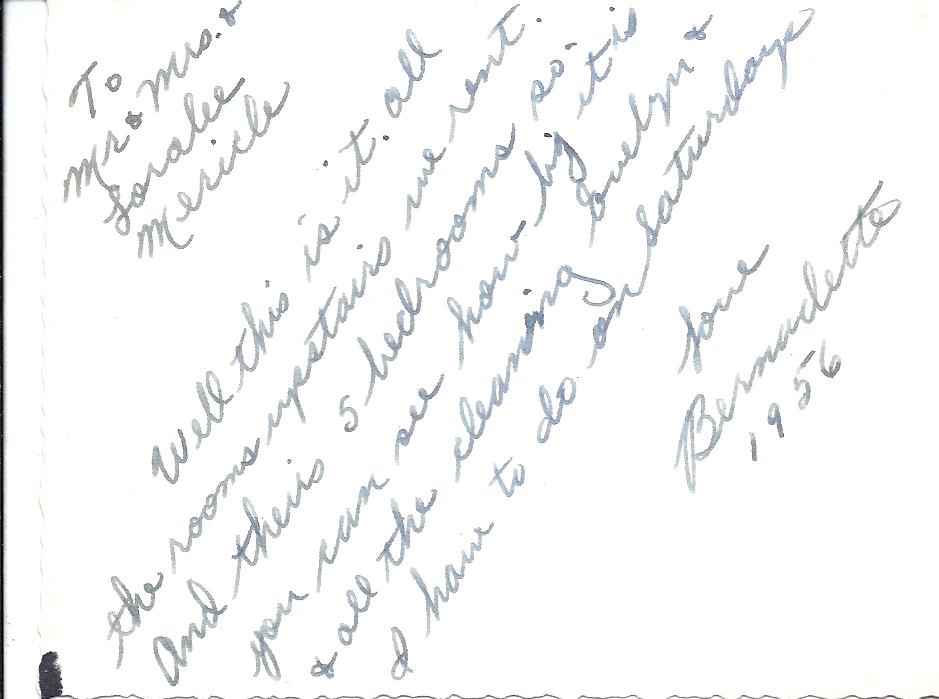 To
Mr & Mrs. &
Loralee
Mericle
Well this is it. all
the rooms upstairs we rent.
And theirs 5 bedrooms so.
you can see how big it is
& all the cleaning Evelyn &
I have to do on Saturdays
Love
Bernadette
1956